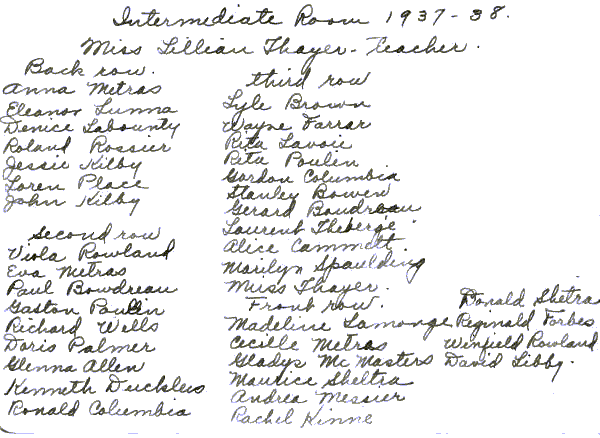 Intermediate Room 1937-38.
Miss Lillian Thayer - Teacher.
Back row.
Anna Metras
Eleanor Lunna
Denice Labounty
Roland Rossier
Jessie Kilby
Loren Place
John Kilby
Second row
Viola Rowland
Eva Metras
Paul Bowdreau
Gaston Poulin
Richard Wells
Doris Palmer
Glenna Allen
Kenneth Duckless
Ronald Columbia
third row
Lyle Brown
Wayne Farrar
Rita Lavoie
Rita Poulin
Gordon Columbia
Stanley Bowen
Gerard Boudreau
Laurent Theberge
Alice Cammett.
Marilyn Spaulding
Miss Thayer.
Front row.
Madeline Lamonge
Cecille Metras
Gladys McMasters
Maurice Sheltra
Andrea Messier
Rachel Kinne
Donald Shetra
Reginald Forbes
Winfield Rowland
David Libby.